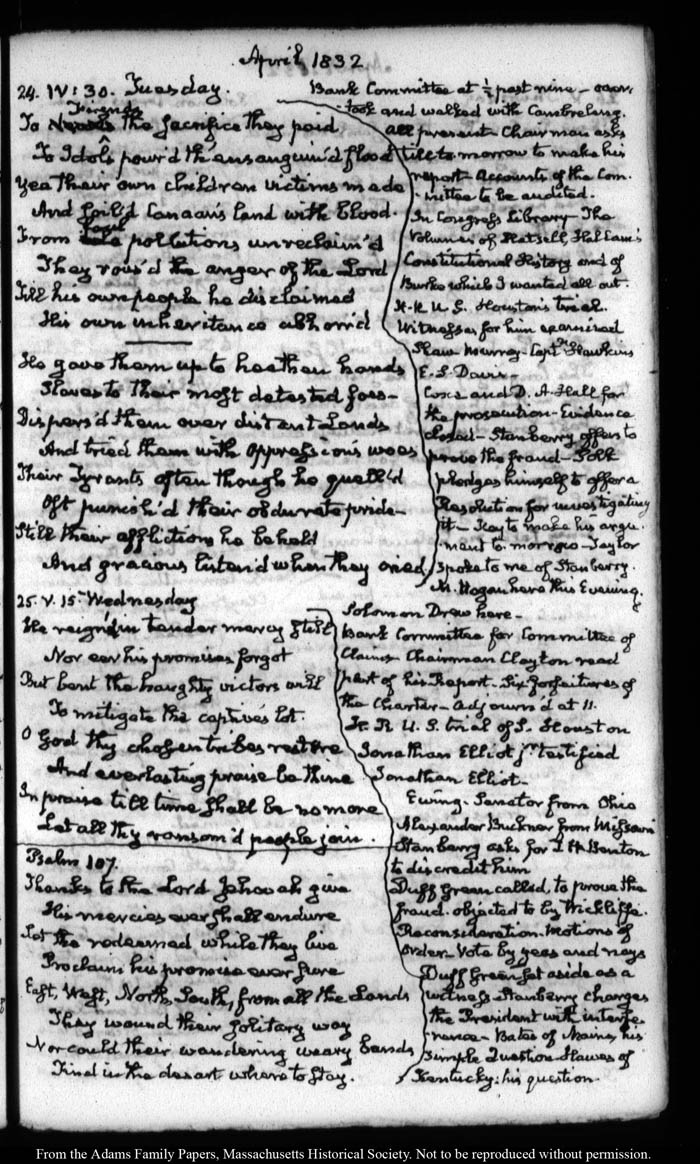 April 1832
24. IV: 30. Tuesday.
Fiends
To the sacrifice they paid
To Idols pour'd th' ensanguin'd flood
Yea their own children victims made
And soil'd Canaan's land with blood.
foul
From pollutions unreclaim'd
They rous'd the anger of the Lord
Till his own people he disclaimed
His own inheritance abhorr'd
He gave them up to heathen hands
Slaves to their most detested foes—
Dispers'd them over distant Lands
And tried them with oppression's woes
Their Tyrants often though he quell'd
Oft punish'd their obdurate pride—
Still their affliction he beheld
And gracious listen'd when they cried
Bank Committee at ½ past nine —
took and walked with Cambreleng.
all present— Chairman asks
till to-morrow to make his
report— Accounts of the Com-
mittee to be audited.
In Congress Library— The
Volumes of Hatsell, Hallam's
Constitutional History and of
Burke which I wanted all out.
H. R. U. S. Houston's trial.
Witnesses for him examined
Shaw Murray— Captn. Hawkins
E. S. Davis—
Coxe and D. A. Hall for
the prosecution— Evidence
closed— Stanberry offers to
prove the fraud— Polk
pledges himself to offer a
Resolution for investigating
it— Key to make his argu-
ment to-morrow— Taylor
spoke to me of Stanberry.
Hogan here this Evening.
25. V. 15. Wednesday
He reign'd in tender mercy still
Nor e'er his promises forgot
But bent the haughty victors will
To mitigate the captives lot.
O God thy chosen tribes restore
And everlasting praise be thine
In praise till time shall be no more
Let all thy ransom'd people join.
Psalm 107.
Thanks to the Lord Jehovah give
His mercies ever shall endure
Let the redeemed while they live
Proclaim his promise ever sure
East, West, North, South, from all the Lands
They wound their solitary way
Nor could their wandering weary bands
Find in the desart where to stay.
Solomon Drew here—
Bank Committee for Committee of
Claims— Chairman Clayton read
part of his Report— Six forfeitures of
the Charter— Adjourn'd at 11.
H. R. U. S. trial of S. Houston
Jonathan Elliot jr. testified
Jonathan Elliot—
Ewing. Senator from Ohio
Alexander Buckner from Missouri
Stanberry asks for T. H. Benton
to discredit him
Duff Green called, to prove the
fraud. objected to by Wickliffe.
Reconsideration. Motions of
order— Vote by yeas and nays
Duff Green set aside as a
witness— Stanberry charges
the President with interfe-
rence— Bates of Maine, his
simple Question— Hawes of
Kentucky: his question—
From the Adams Family Papers, Massachusetts Historical Society. Not to be reproduced without permission.